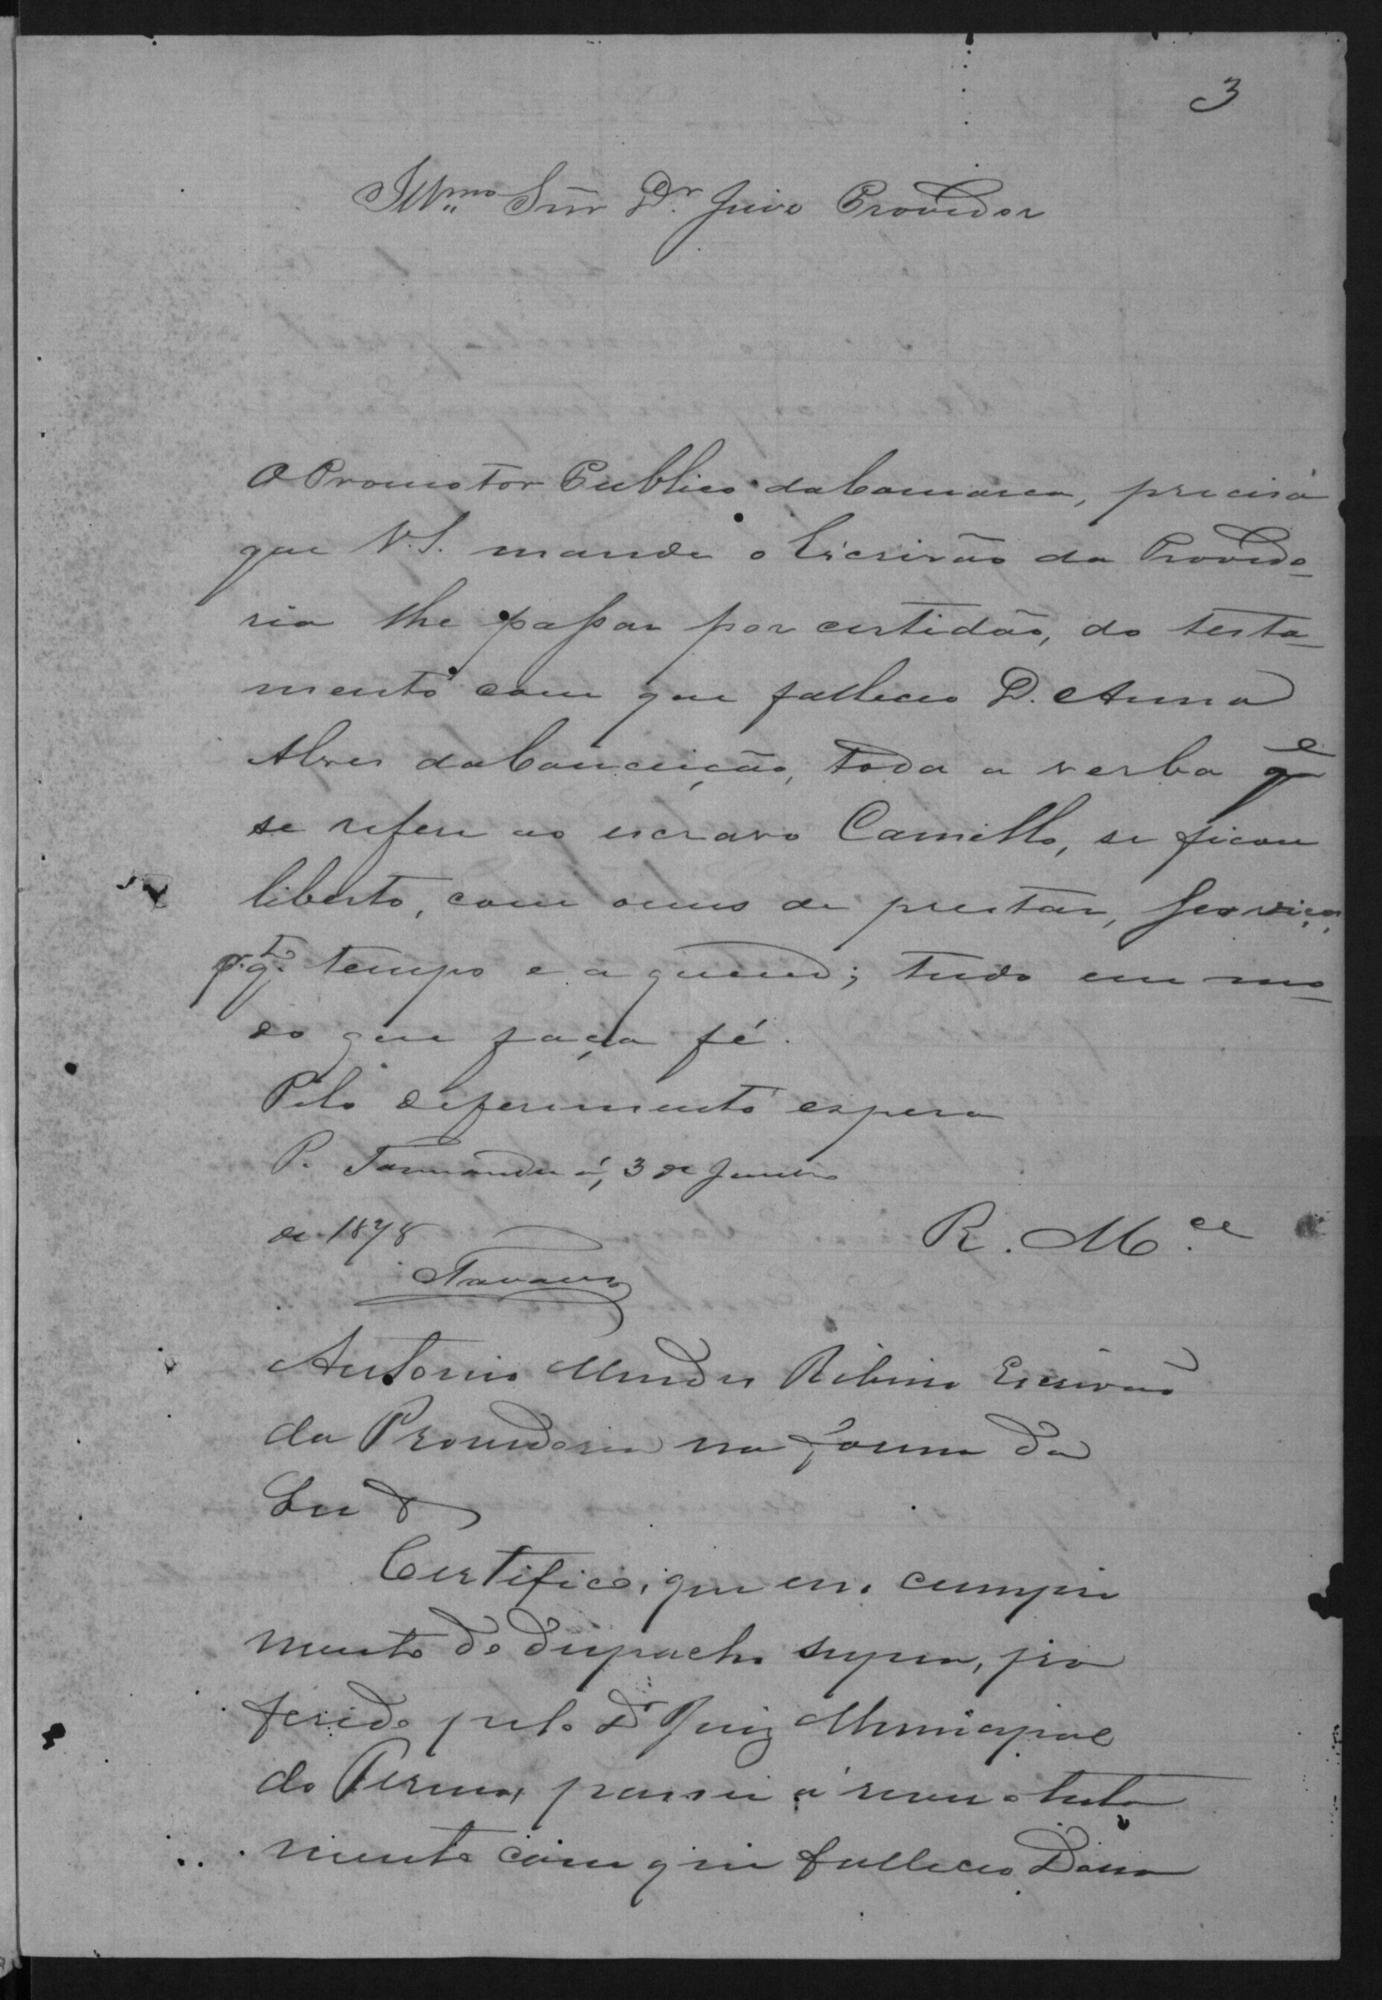 3
Illmo Snr Dr. Juiz Provedor
O Promotor Publico da Comarca, precisa
que V.S. mande o Escrivão da Provedo-
ria lhe passar por certidão, do testa-
mento com que falleceo D. Anna
Alves da Conceição, toda a verba qe
se refere ao escravo Camillo, se ficou
liberto, com onus de prestar, serviços,
pr. qto. tempo e a quem; tudo em mo-
do que faça fé.
Pelo deferimento espera
P. á, 3 de Junho
de 1878
R. Mce
Tavares
Antonio Mendes Ribeiro Escrivão
da Provedoria na forma da
Lei &
Certifico, que em cumpri
mento do despacho supra, pro
ferido pelo Dr Juiz Municipal
do Termo, passei á rever o testa
mento com que falleceo Dona